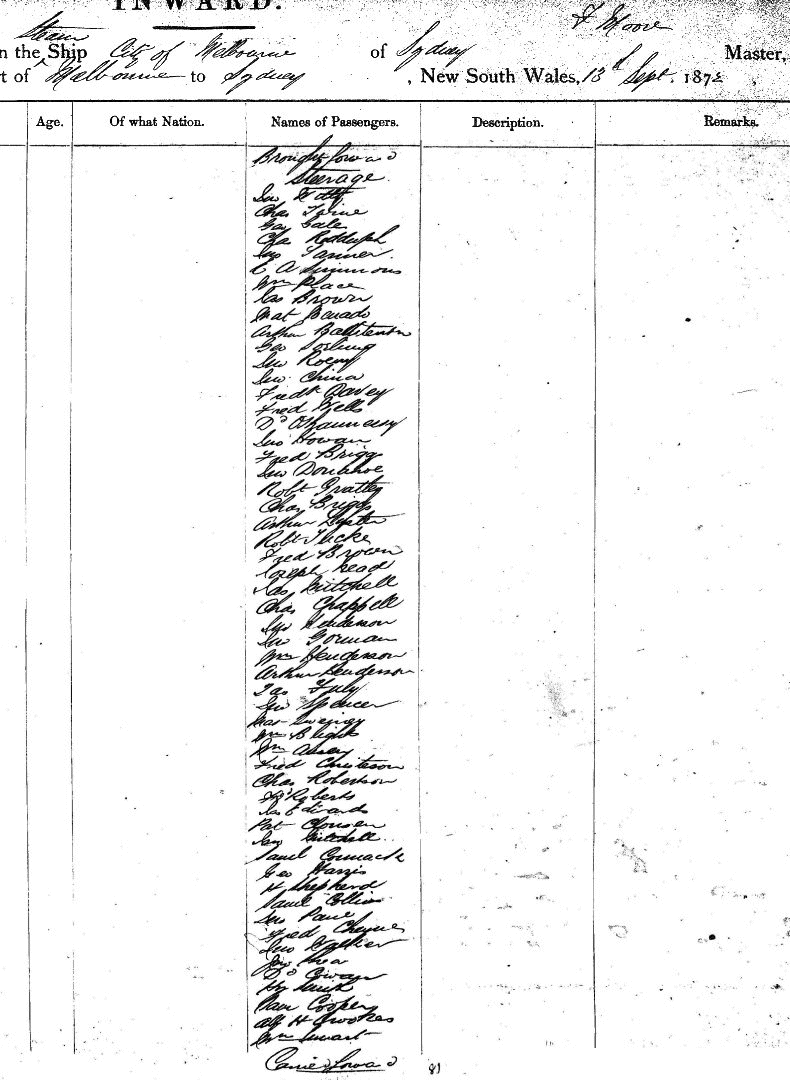 INWARD.
Steam F Moore
n the Ship City of Melbourne of Sydney Master,
rt of Melbourne to Sydney, New South Wales, 13th Sept. 1872
Age. Of what Nation. Names of Passengers. Description. Remarks.
Brought forward
Steerage
Jno
Chas
Geo Gale
Chas Rodolph
Jno Tanner
E A Simmons
Wm Place
Jas Brown
Mat
Arthur
Geo
Jno
Jno China
Fredk Davey
Fred Wells
Do OShaunessy
Jno Howan
Fred Briggs
Jno Donahoe
Robt Gratley
Chas Briggs
Arthur Lyster
Robt Tucke
Fred Brown
Joseph Head
Jas Mitchell
Chas Chappell
Jno Henderson
Jno Gorman
Wm Henderson
Arthur Henderson
Jas July
Geo Spencer
Sweeney
Wm Blight
Wm
Fred Christeson
Chas Robertson
Roberts
Jas Edwards
Pat
Mitchell
Saml Cormack
Geo Harris
H Shepherd
Saml Collins
Jno Paul
Fred Cheyne
Jno Walker
Jno Shea
Do Cowan
Hy Smith
Cooper
Alf H Crookes
Wm Smart
Carried forward 81